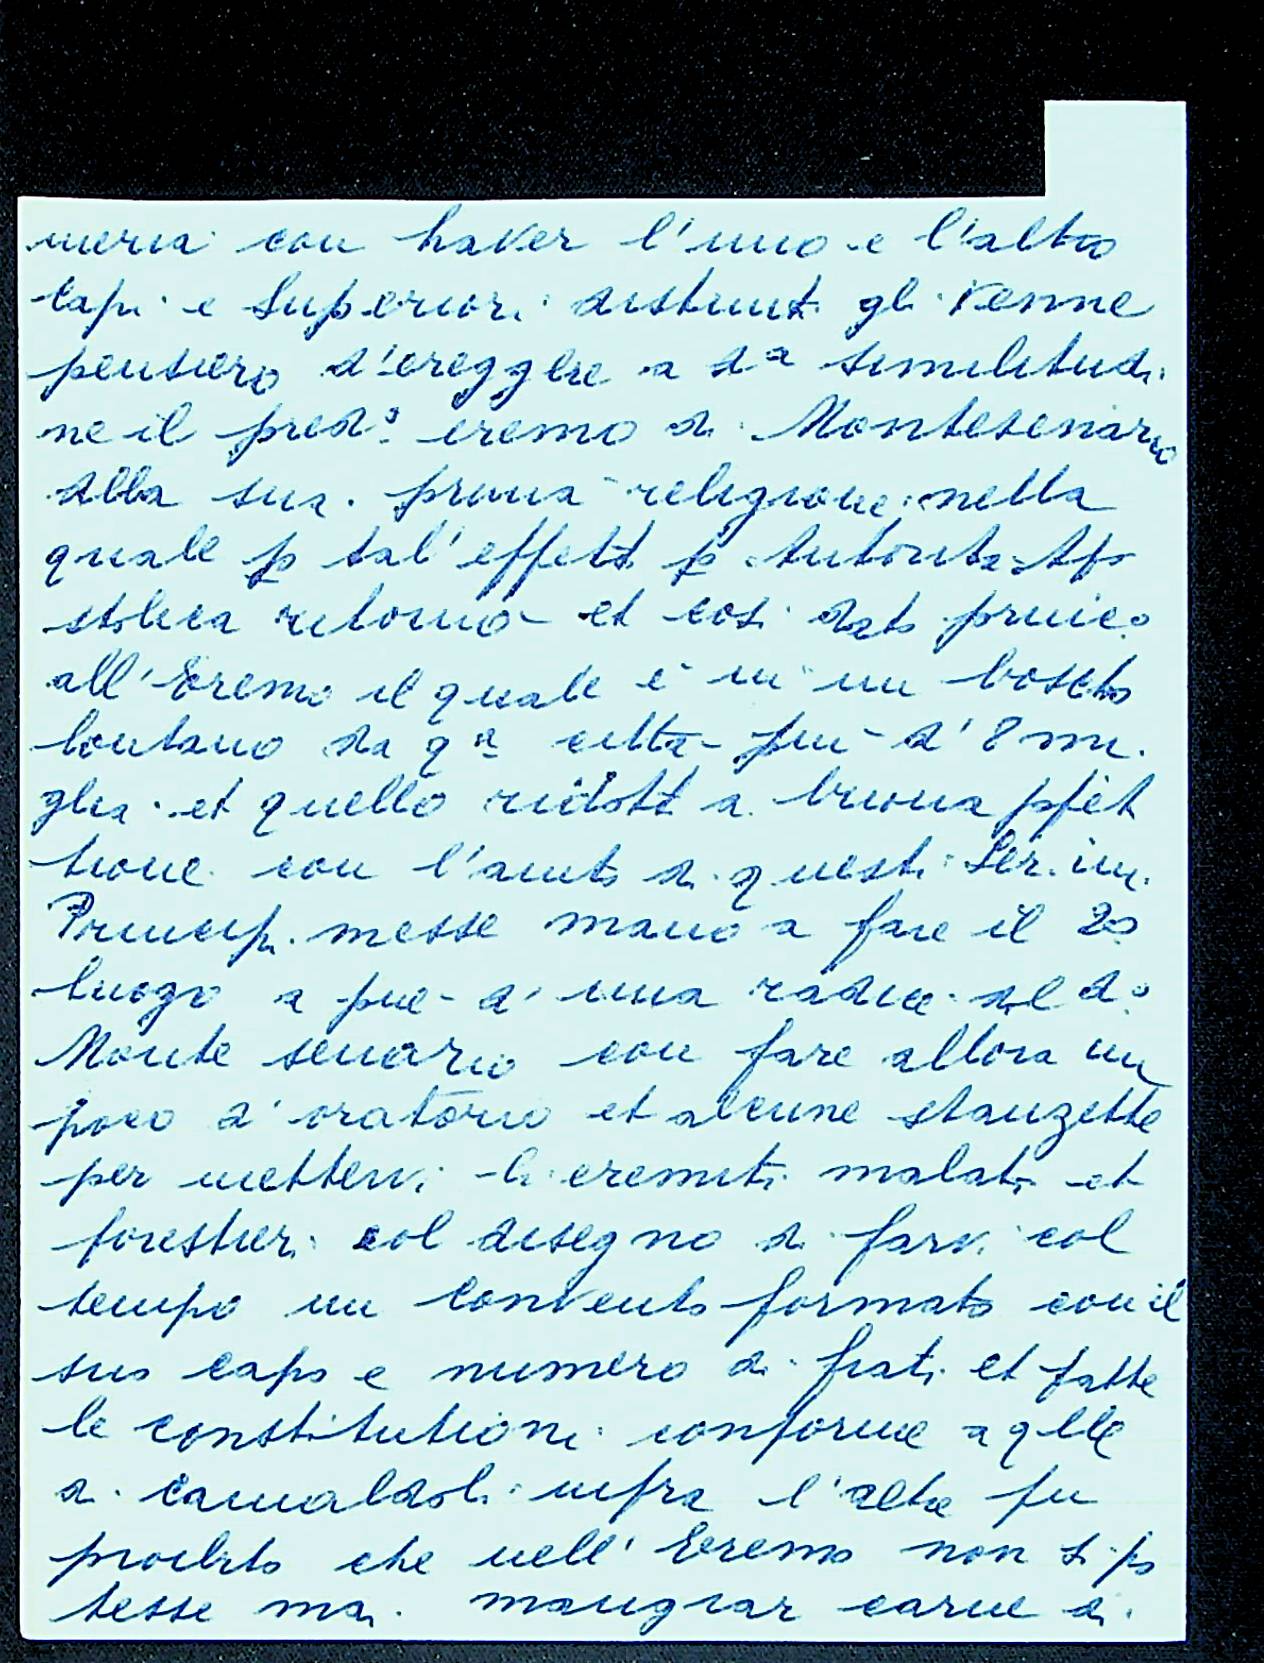 meria con haver l'uno e l'altro
capi e Superiori distinti gli venne
pensiero d'ereggere a dª similitudi
ne il predº eremo di Montesenario
alla sua prima religione nella
quale p tal'effetto p Autorita Apo
stolica ritornò et così dato princº
all'Eremo il quale è in un boscho
lontano da qª citta più d'8 mi
glia et quello ridotto a buona pfet
tione con l'aiuto di questi Ser.mi
Principi messe mano a fare il 2º
luogo a piè d'una radice del dº
Monte senario con fare allora un
poco d'oratorio et alcune stanzette
per mettervi li eremiti malati et
forestieri col disegno di farvi col
tempo un convento formato con il
suo capo e numero di frati et fatte
le constitutioni conforme a qlle
di Camaldoli infra l'altre fu
proibito che nell'Eremo non si po
tesse mai mangiar carne di